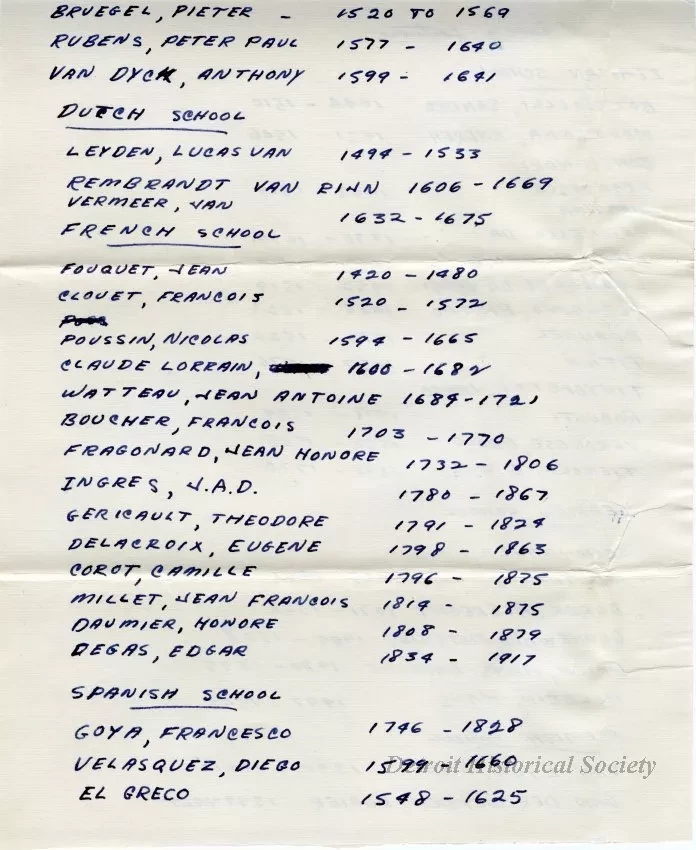 BRUEGEL, PIETER - 1520 TO 1569
RUBENS, PETER PAUL 1577 - 1640
VAN DYCK, ANTHONY 1599 - 1641
DUTCH SCHOOL
LEYDEN, LUCAS VAN 1494 - 1533
REMBRANDT VAN RIJN 1606 - 1669
VERMEER, JAN 1632 - 1675
FRENCH SCHOOL
FOUQUET, JEAN 1420 - 1480
CLOUET, FRANCOIS 1520 - 1572
POUSSIN, NICOLAS 1594 - 1665
CLAUDE LORRAIN, 1600 - 1682
WATTEAU, JEAN ANTOINE 1684 - 1721
BOUCHER, FRANCOIS 1703 - 1770
FRAGONARD, JEAN HONORE 1732 - 1806
INGRES, J.A.D. 1780 - 1867
GERICAULT, THEODORE 1791 - 1824
DELACROIX, EUGENE 1798 - 1863
COROT, CAMILLE 1796 - 1875
MILLET, JEAN FRANCOIS 1814 - 1875
DAUMIER, HONORE 1808 - 1879
DEGAS, EDGAR 1834 - 1917
SPANISH SCHOOL
GOYA, FRANCESCO 1746 - 1828
VELASQUEZ, DIEGO 1599 - 1660
Detroit Historical Society
EL GRECO 1548 - 1625